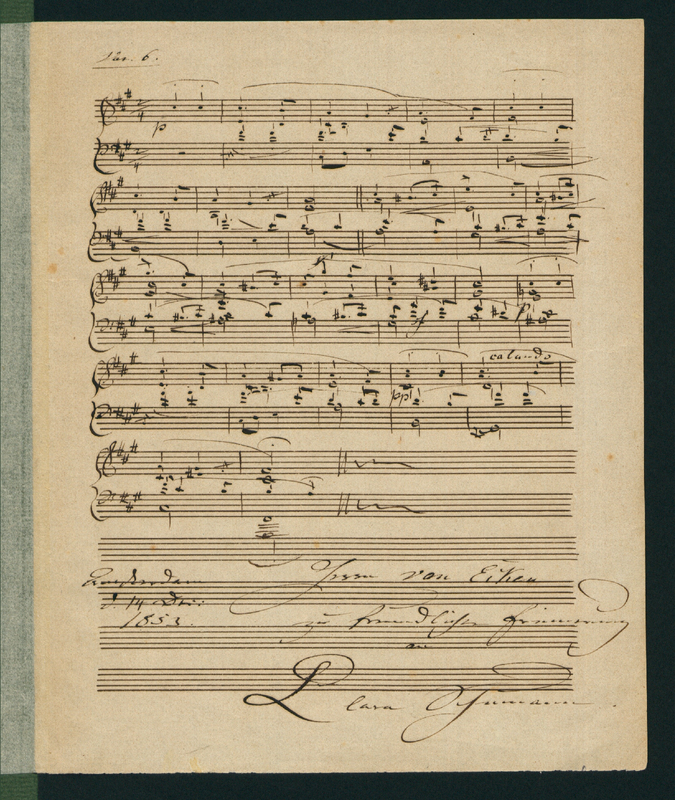 Var. 6.
p
f
p
calando
pp
Amsterdam
d. 14 Dec:
1853.
Herrn von Eiken
zu freundlicher Erinnerung
an
Clara Schumann.